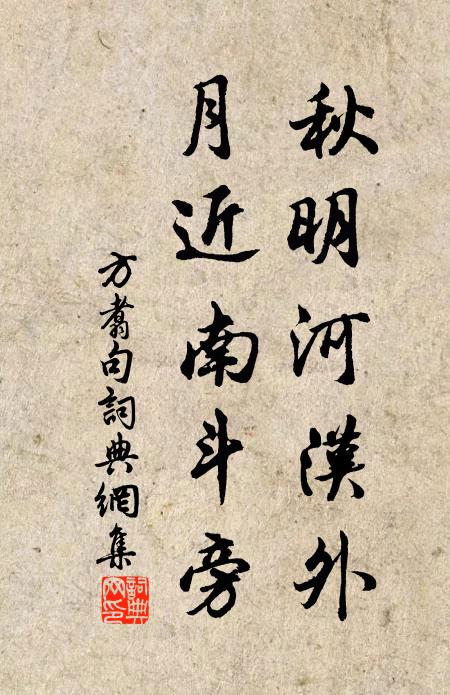 秋明河漢外
月近南斗旁
方翥句詞典網集
詞典網印